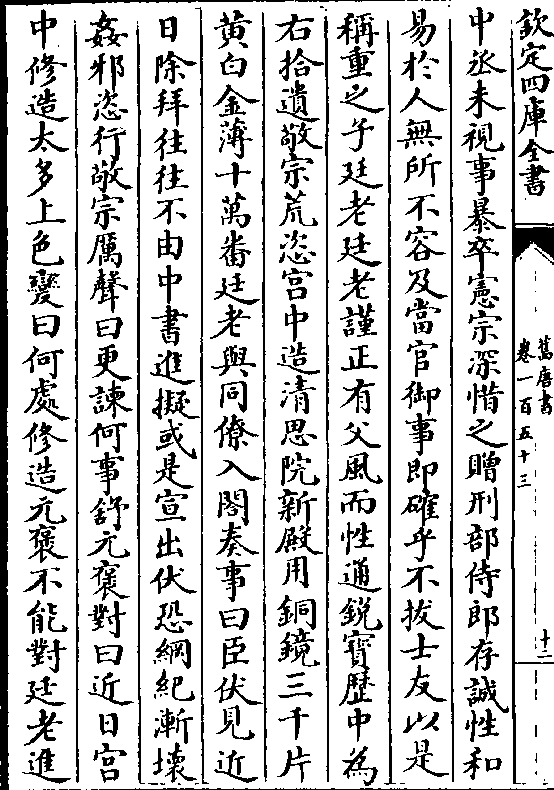 欽定四庫全書
舊唐書
卷一百五十三
十二
中丞未視事暴卒憲宗深惜之贈刑部侍郎存誠性和
易於人無所不容及當官御事即確乎不拔士友以是
稱重之子廷老廷老謹正有父風而性通銳寶歷中為
右拾遺敬宗荒恣宫中造清思院新殿用銅鏡三千片
黄白金薄十萬畨廷老與同僚入閤奏事曰臣伏見近
日除拜往往不由中書進擬或是宣出伏恐綱紀漸壊
姦邪恣行敬宗厲聲曰更諫何事舒元褒對曰近日宫
中修造太多上色變曰何處修造元褒不能對廷老進